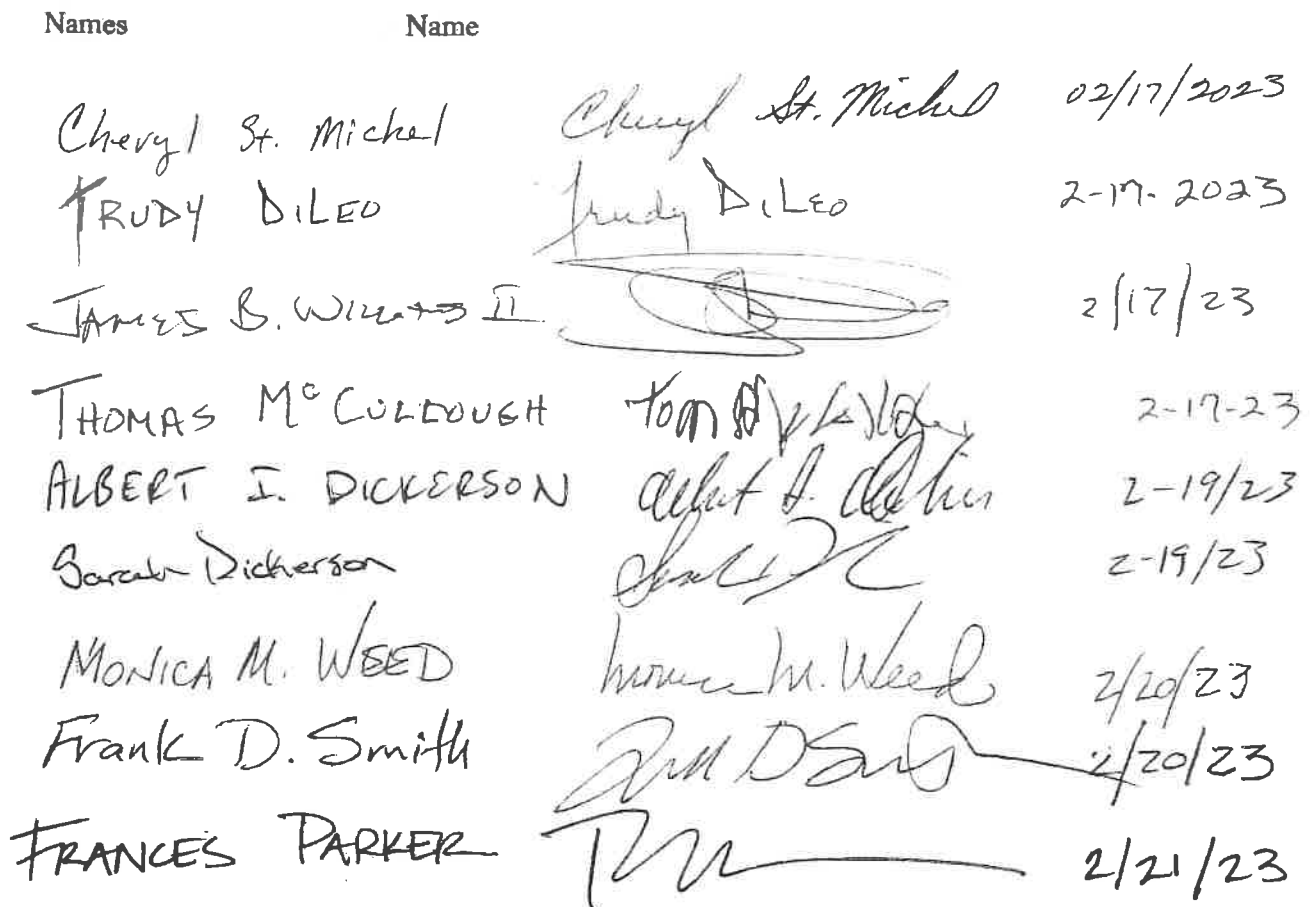 Names Name
Cheryl St. Michel Cheryl St. Michel 02/17/2023
TRUDY DiLEO Trudy DiLEO 2-17-2023
JAMES B. II 2/17/23
THOMAS Mc CULLOUGH Tom 2-17-23
ALBERT I. DICKERSON Albert I. 2-19/23
Sarah Dickerson 2-19/23
MONICA M. WEED Monica M. Weed 2/20/23
Frank D. Smith 2/20/23
FRANCES PARKER 2/21/23